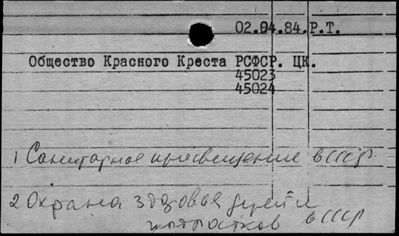 02.04.84.Р.Т.
Общество Красного Креста РСФСР. ЦК.
45023
45024
1 Санитарное просвещение в СССР
2 Охрана здоровья детей и
подростков в СССР